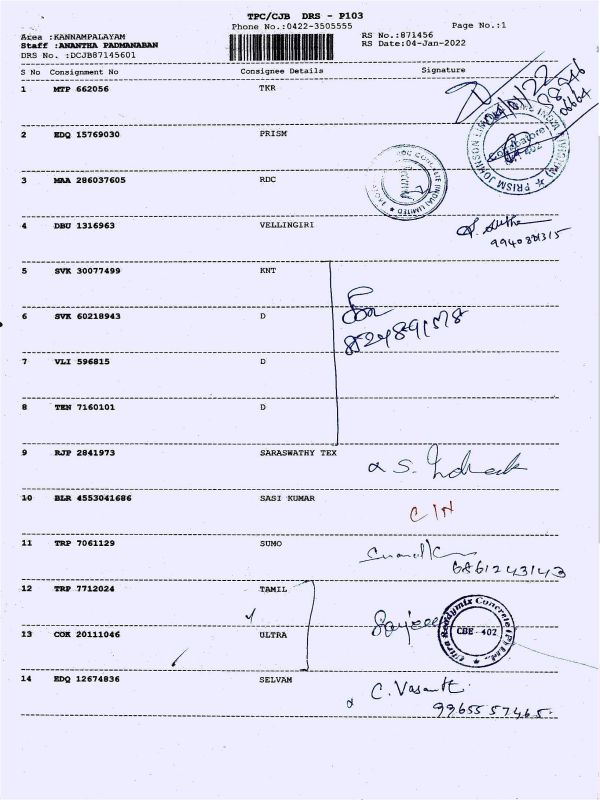 TPC/CJB DRS - P103
Phone No.:0422-3505555
Page No.:1
Area :KANNAMPALAYAM
RS No.:871456
Staff :ANANTHA PADMANABAN
RS Date:04-Jan-2022
DRS No. :DCJB87145601
S No Consignment No Consignee Details Signature
1 MTP 662056 TKR
2 EDQ 15769030 PRISM
PRISM JOHNSON LIMITED
3 MAA 286037605 RDC
RDC CONCRETE (INDIA) LIMITED
4 DBU 1316963 VELLINGIRI
5 SVK 30077499 KNT
6 SVK 60218943 D
7 VLI 596815 D
8 TEN 7160101 D
9 RJP 2841973 SARASWATHY TEX
10 BLR 4553041686 SASI KUMAR
11 TRP 7061129 SUMO
6861243143
12 TRP 7712024 TAMIL
13 COK 20111046 ULTRA
Ultra Readymix Concrete (P) Ltd.,
CBE - 402
14 EDQ 12674836 SELVAM
C. Vasanth
9965557465